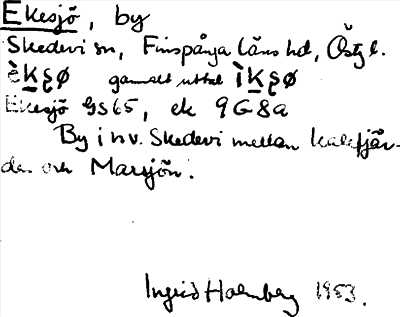 Ekesjö, by
Skedevi sn, Finspånga läns hd, Östg l.
èkʂø gammalt uttal ìkʂø
Ekesjö GS65, ek 9G8a
By i nv. Skedevi mellan
den och Marsjön.
Ingrid Holmberg 1953.